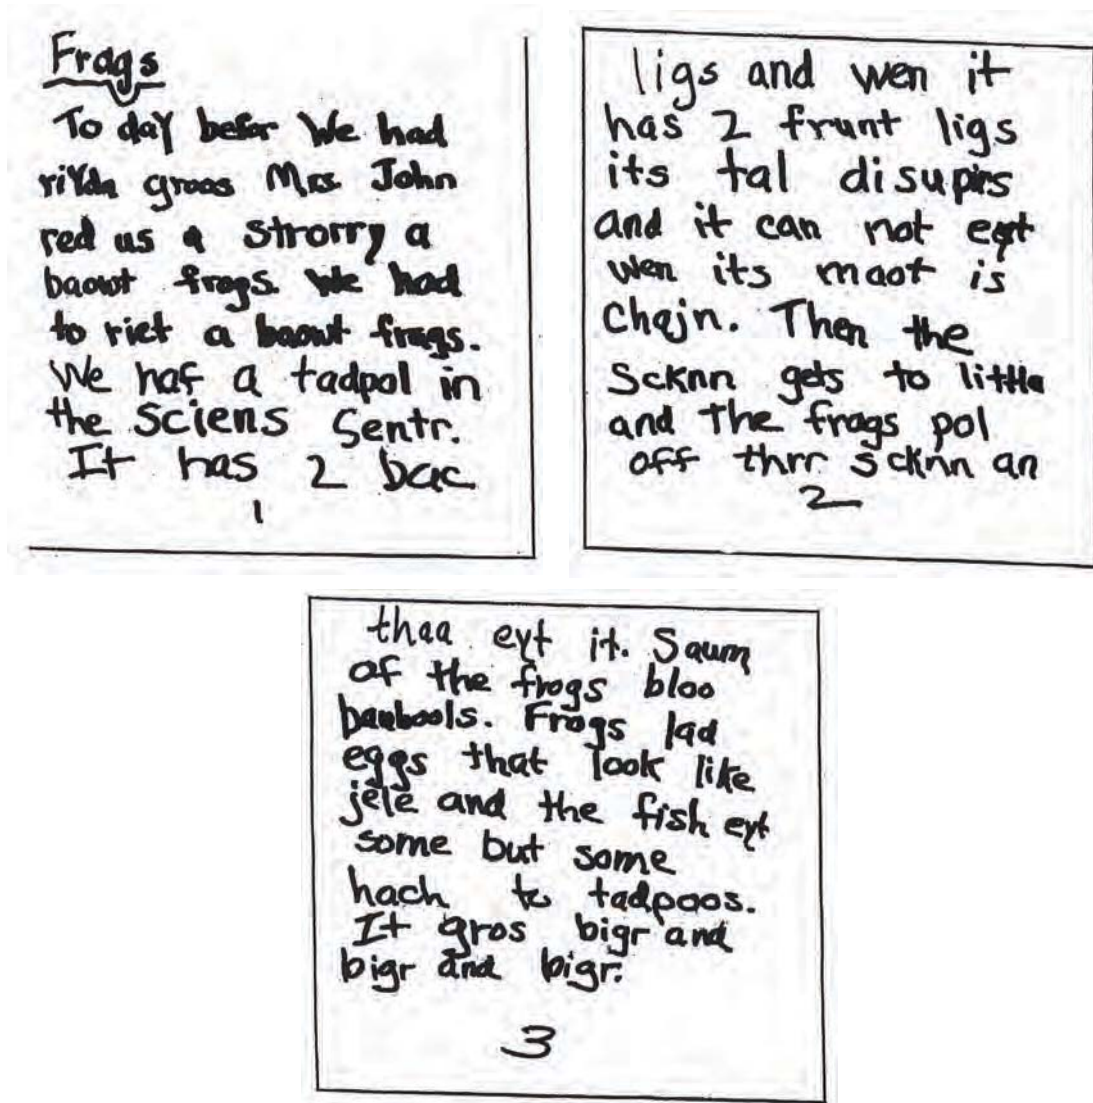 Frags
To day befor We had
riYda groos Mrs. John
red us a strorry a
baowt frogs. We had
to riet a baowt frags.
We haf a tadpol in
the sciens Sentr.
It has 2 bac
1
ligs and wen it
has 2 frunt ligs
its tal disupirs
and it can not eyt
wen its maot is
Chajn. Then the
Scknn gets to little
and The frogs pol
off thrr scknn an
2
thaa eyt it. Saum
of the frogs bloo
baubools. Frogs lad
eggs that look like
jele and the fish eyt
some but some
hach to tadpoos.
It gros bigr and
bigr and bigr.
3